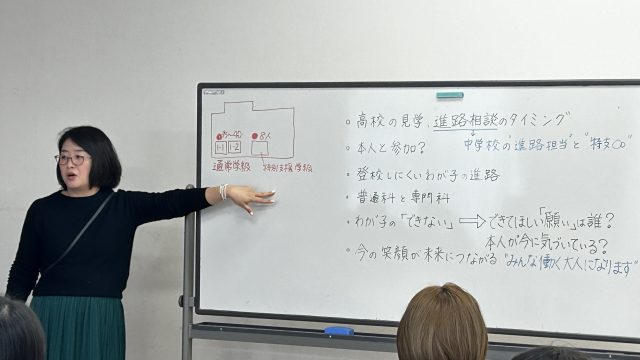 35~40
8人
1-1 1-2
通常学級
特別支援学級
○ 高校の見学、進路相談のタイミング
中学校の"進路担当"と"特支Co"
○ 本人と参加?
○ 登校しにくいわが子の進路
○ 普通科と専門科
○ わが子の「できない」⇒できてほしい「願い」は誰?
本人が今に気づいている?
○ 今の笑顔が未来につながる "みんな働く大人になります"